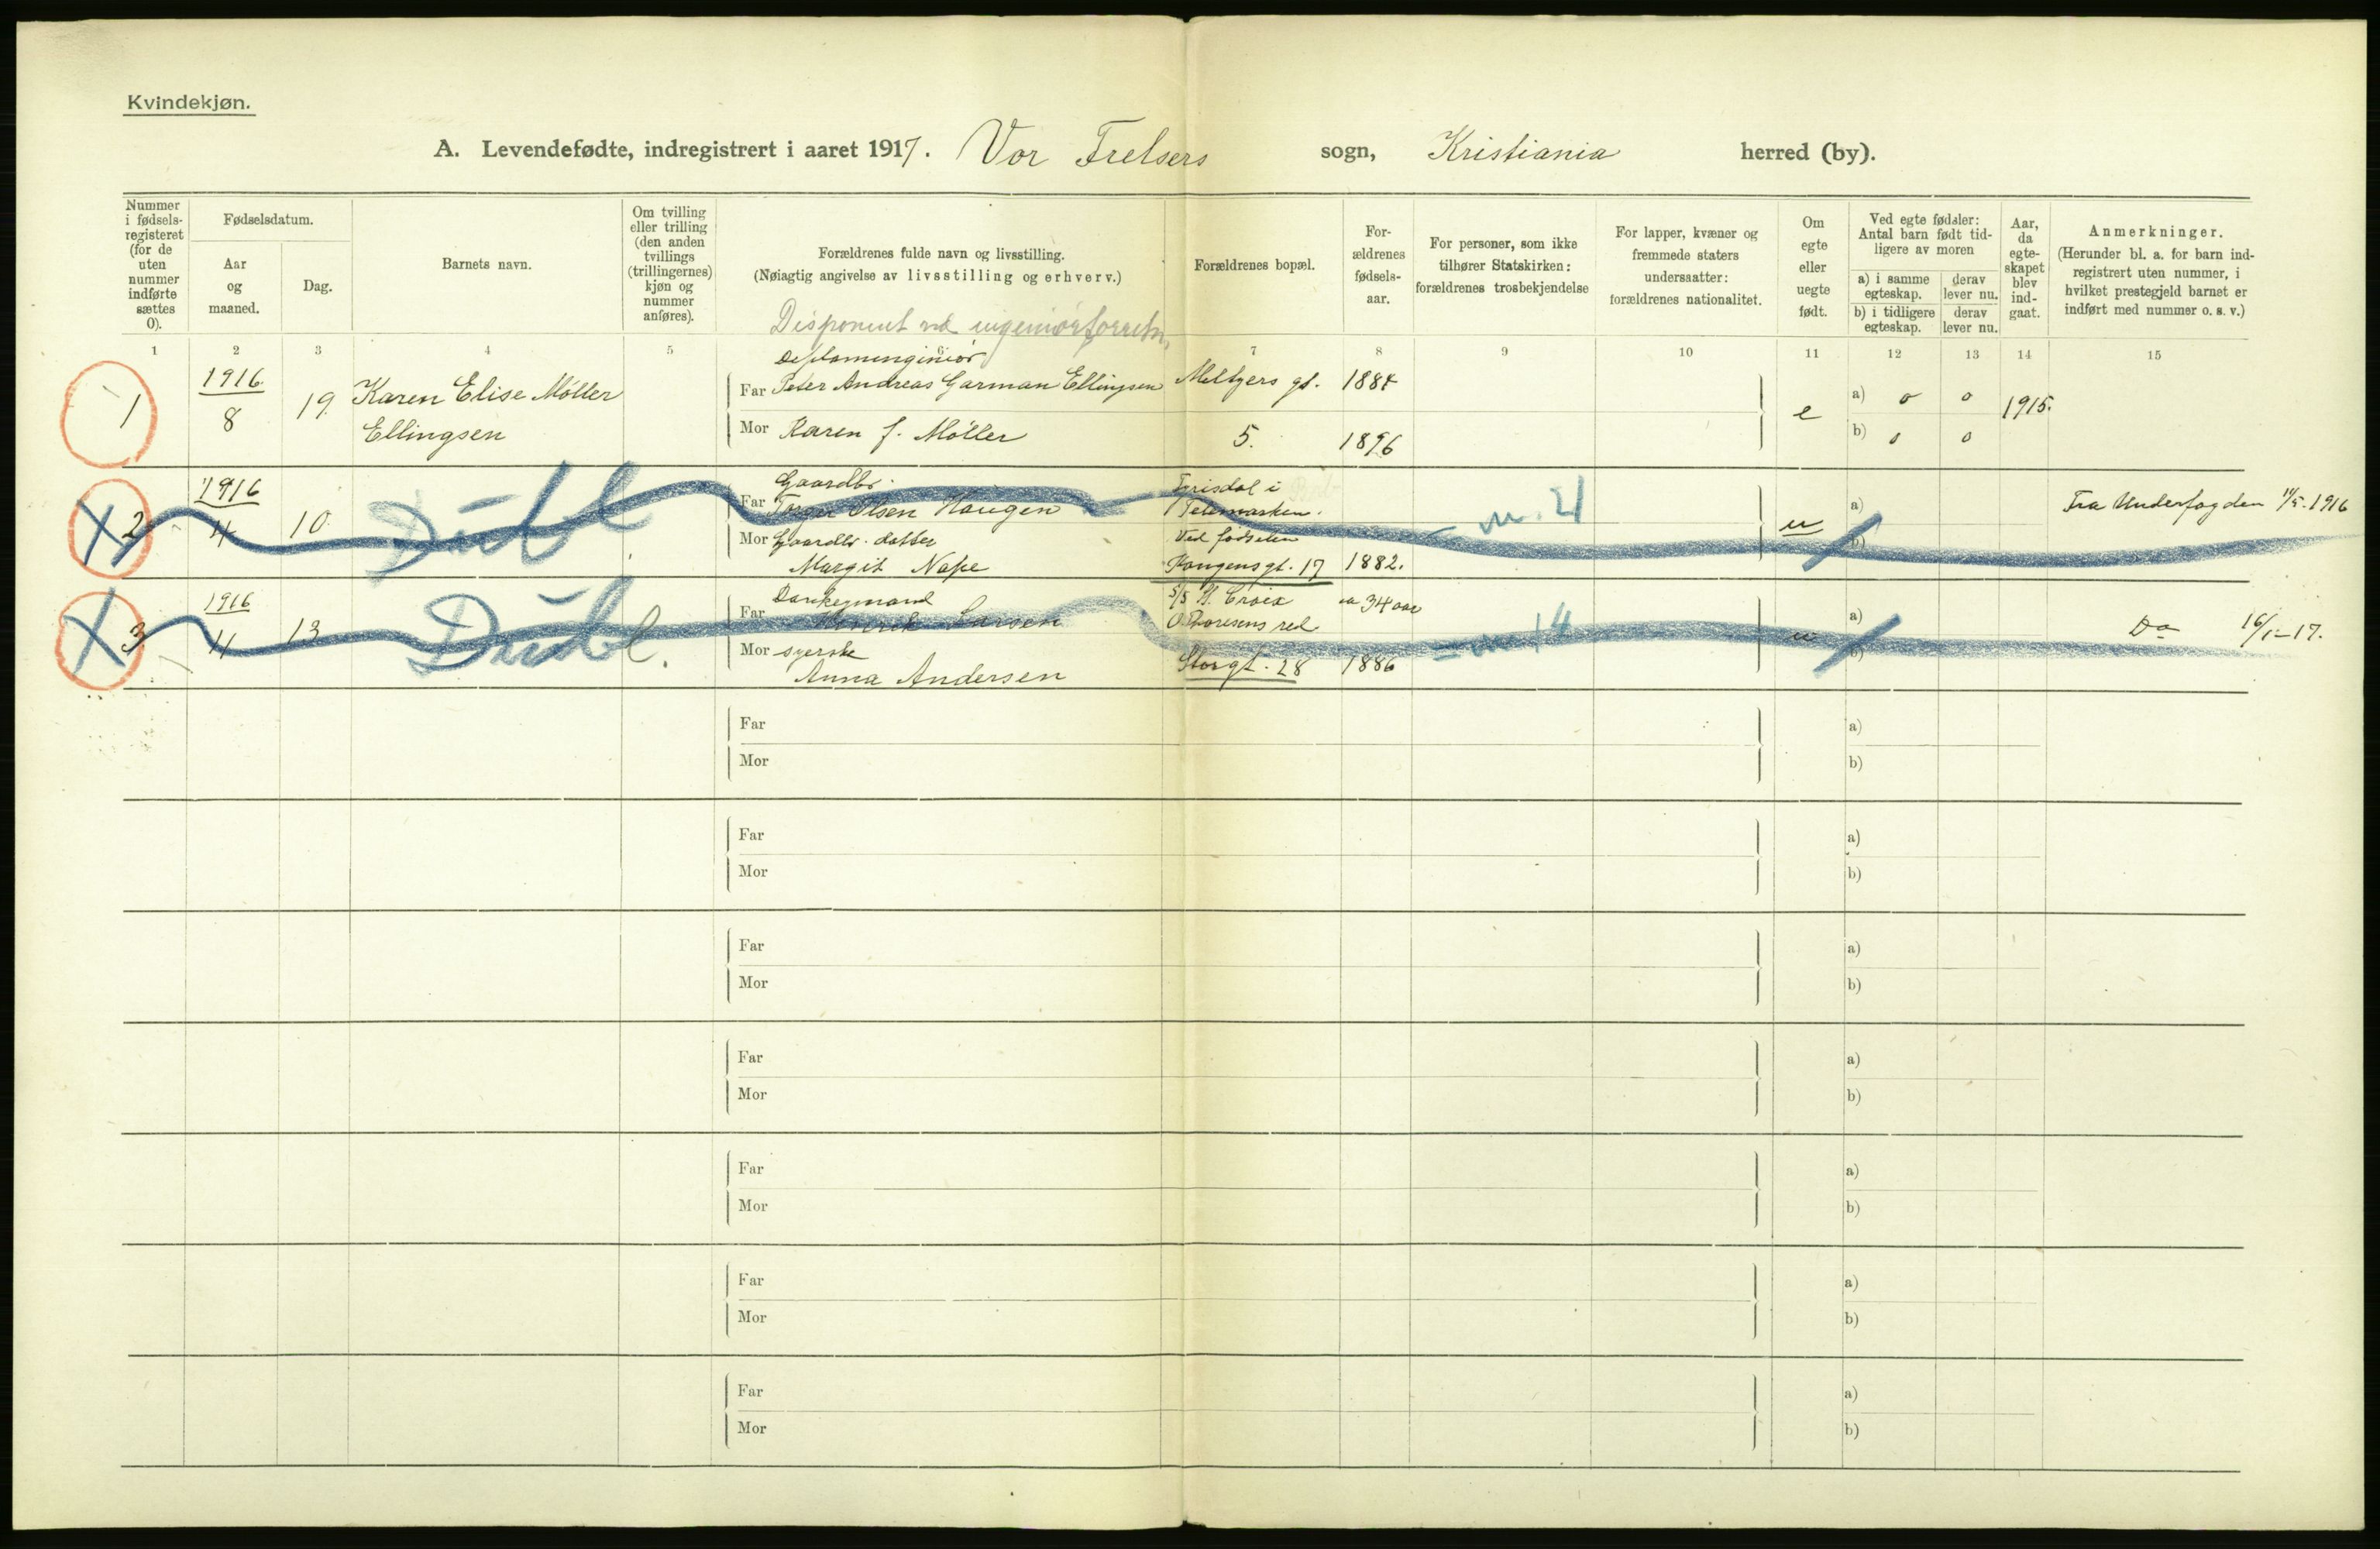 Kvindekjøn.
A. Levendefødte, indregistrert i aaret 1917. Vor Frelsers sogn, Kristiania herred (by).
Nummer i fødsels-registeret (for de uten nummer indførte sættes 0).
Fødselsdatum.
Aar og maaned.
Dag.
Barnets navn.
Om tvilling eller trilling (den anden tvillings (trillingernes) kjøn og nummer anføres).
Forældrenes fulde navn og livsstilling.
(Nøiagtig angivelse av livsstilling og erhverv.)
Forældrenes bopæl.
For-ældrenes fødsels-aar.
For personer, som ikke tilhører Statskirken: forældrenes trosbekjendelse
For lapper, kvæner og fremmede staters undersaatter: forældrenes nationalitet.
Om egte eller uegte født.
Ved egte fødsler: Antal barn født tid-ligere av moren
a) i samme egteskap. derav lever nu.
b) i tidligere egteskap. derav lever nu.
Aar, da egte-skapet blev ind-gaat.
Anmerkninger.
(Herunder bl. a. for barn ind-registrert uten nummer, i hvilket prestegjeld barnet er indført med nummer o. s. v.)
1 2 3 4 5 6 7 8 9 10 11 12 13 14 15
Disponent ved ingeniørforretn.
1 1916 8 19. Karen Elise Møller Ellingsen
Far Peter Andreas Garman Ellingsen Meltzers gt. 1884
Mor Karen f. Møller 5. 1896
e a) 0 0 1915.
b) 0 0
2 1916 11 10. Dubl
Gaardbr.
Far Torger Olsen Haugen
Mor Gaardbr. datter
Margit Nape
Telemarken.
Ved fødselen
Kongens gt. 17 1882.
= m. 21
u a)
b)
Fra Underfogden 1916
3. 1916 11 13 Dubl.
Donkeymand
Far Henrik Larsen S/S St. Croix ca 34 aar
O. Thoresens red
Mor syerske
Anna Andersen Storgt. 28 1886
= m 14
u a)
b)
Do 16/1-17.
Far a)
Mor b)
Far a)
Mor b)
Far a)
Mor b)
Far a)
Mor b)
Far a)
Mor b)
Far a)
Mor b)
Far a)
Mor b)